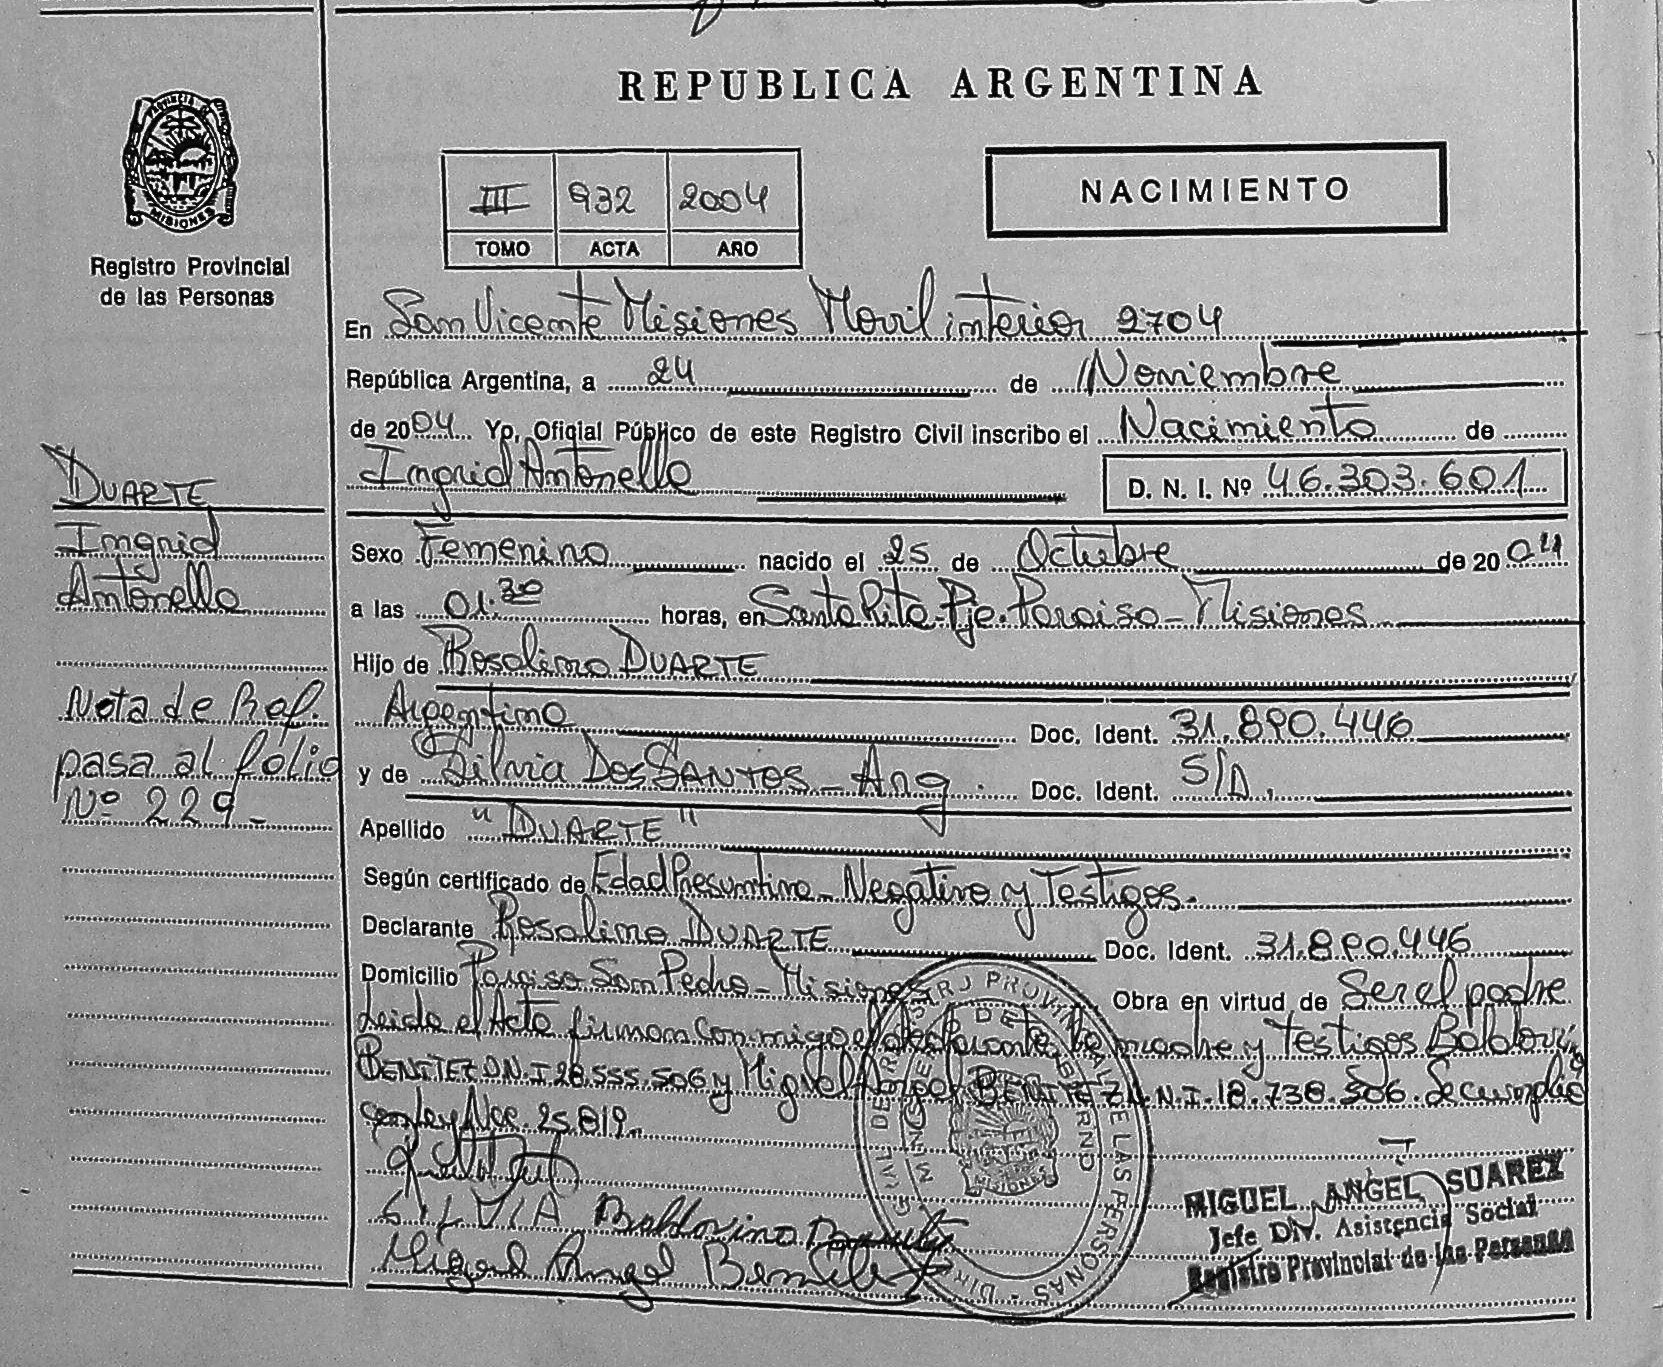 REPUBLICA ARGENTINA
PROVINCIA DE
MISIONES
Registro Provincial
de las Personas
III 932 2004
TOMO ACTA AÑO
NACIMIENTO
En San Vicente Misiones Movil interior 2704
República Argentina, a 24 de Noviembre
de 2004 Yo, Oficial Público de este Registro Civil inscribo el Nacimiento de
Ingrid Antonella D. N. I. Nº 46.303.601
Sexo Femenino nacido el 25 de Octubre de 2004
a las 01.30 horas, en Santa Rita-Pje. Paraiso-Misiones
Hijo de Rosalino DUARTE
Argentino Doc. Ident. 31.890.446
y de Silvia DOS SANTOS - Arg. Doc. Ident. S/D.
Apellido "DUARTE"
Según certificado de Edad Presuntiva - Negativo y Testigos.
Declarante Rosalino DUARTE Doc. Ident. 31.890.446
Domicilio Paraiso San Pedro - Misiones Obra en virtud de Ser el padre
Leida el Acta firman conmigo el declarante, la madre y testigos Baldovino
BENITEZ D.N.I 28.555.506 y Miguel Angel BENITEZ D.N.I. 18.738.506. Se cumplio
con ley Nac. 25.819.
SILVIA Baldovino Benitez
Miguel Angel Benitez
DUARTE
Ingrid
Antonella
Nota de Ref.
pasa al folio
Nº 229-
MIGUEL ANGEL SUAREZ
Jefe Div. Asistencia Social
Registro Provincial de las Personas